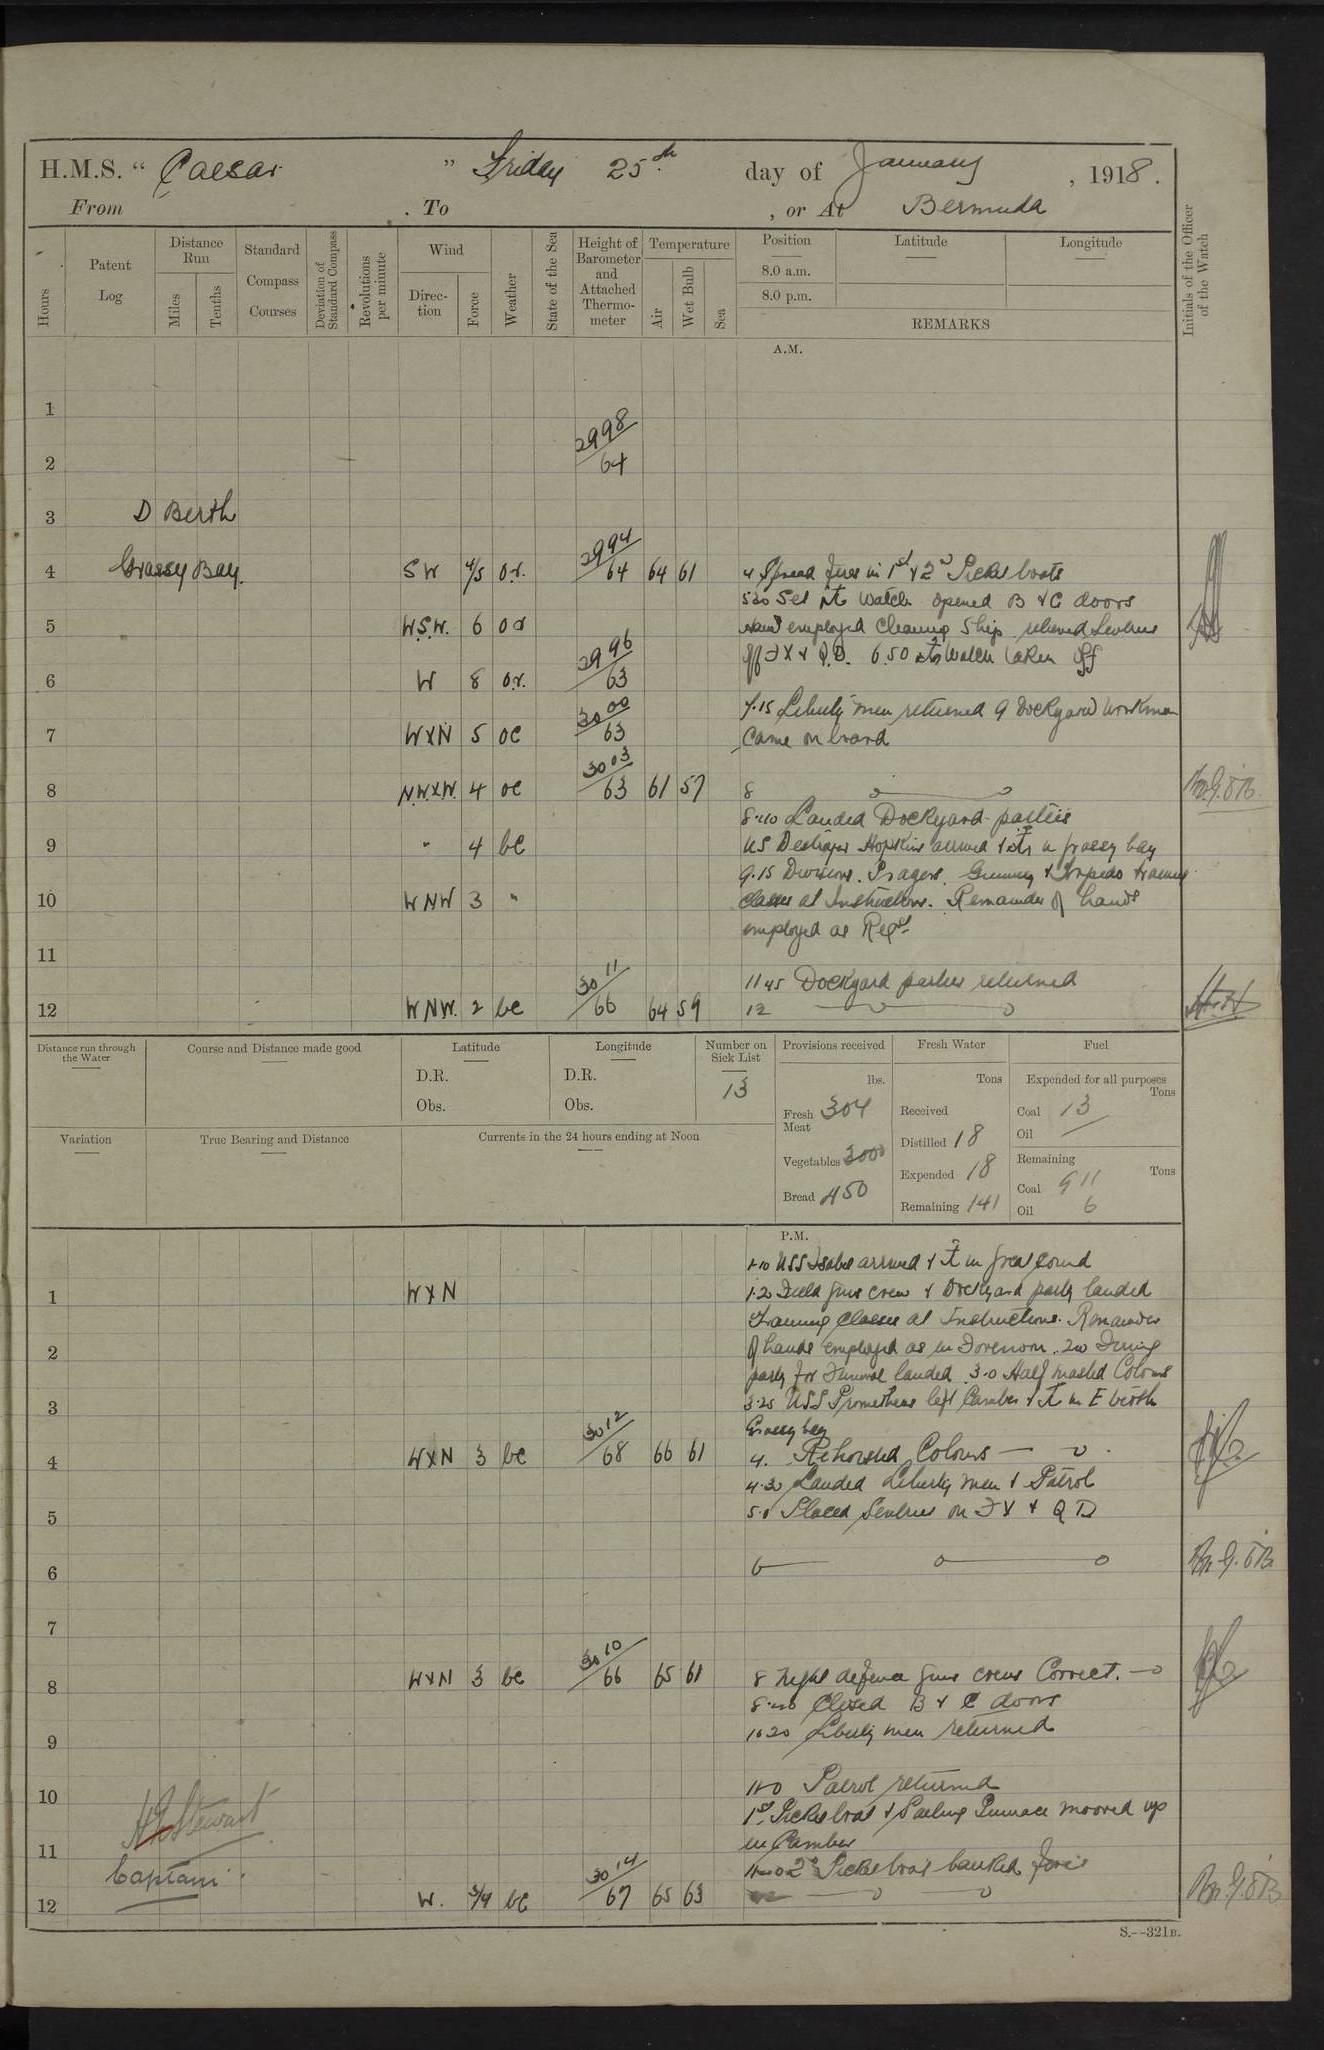 H.M.S. “ Caesar ” Friday 25th. day of January, 1918.
From . To , or At Bermuda
Hours
Patent Log
Distance Run
Miles
Tenths
Standard Compass Courses
Deviation of Standard Compass
Revolutions per minute
Wind
Direction
Force
Weather
State of the Sea
Height of Barometer and Attached Thermometer
Temperature
Air
Wet Bulb
Sea
Position
8.0 a.m.
8.0 p.m.
Latitude
Longitude
REMARKS
Initials of the Officer of the Watch
A.M.
1
2998/64
2
3 D Berth
4 Grassy Bay. SW 4/5 or. 2994/64 64 61 4 Spread fires in 1st & 2d Picket boats
530 Set Watch opened B & C doors
5 W.S.W. 6 od employed Cleaning Ship relieved Sentries
off FX & Q.D. 6.50 Watch taken off
6 W 8 o.r. 2996/63
7.15 Liberty men returned 9 Dockyard workmen
7 WXN 5 oc 3000/63 Came on board
8 N.W.XW. 4 oc 3003/63 61 57 8
8.40 Landed Dockyard parties
9 " 4 bc US Destroyer Hopkins arrived & in Grassy bay
9.15 Divisions. Prayers. Gunnery & Torpedo training
10 WNW 3 " Classes at Instructions. Remainder of hands
employed as Reqd.
11
11 45 Dockyard parties returned
12 WNW. 2 bc 3011/66 64 59 12
Distance run through the Water
Course and Distance made good
Latitude
D.R.
Obs.
Longitude
D.R.
Obs.
Number on Sick List
13
Provisions received
lbs.
Fresh Meat 304
Vegetables 3000
Bread 450
Fresh Water
Tons
Received
Distilled 18
Expended 18
Remaining 141
Fuel
Expended for all purposes
Tons
Coal 13
Oil
Remaining
Tons
Coal 911
Oil 6
Variation
True Bearing and Distance
Currents in the 24 hours ending at Noon
P.M.
1.10 USS Isabel arrived & in Great Sound
1 WXN 1.20 Field guns crew & Dockyard party landed
Training Classes at Instructions. Remainder
2 of hands employed as in Forenoon. 2.0 Firing
party for Funeral landed. 3.0 Half masted Colours
3 3.25 USS Prometheus left Camber & in E berth
Grassy bay
4 WXN 3 bc 3012/68 66 61 4. Rehoisted Colours
4.30 Landed Liberty men & Patrol
5 5.0 Placed Sentries on FX & QD
6 6
7
8 WXN 3 bc 3010/66 65 61 8 Night defence guns crews Correct.
8.40 Closed B & C doors
9 10 20 Liberty men returned
10 11.0 Patrol returned
1st. Picket boat & Sailing Pinnace moored up
11 in Camber
2d Picket boat banked fires
12 W. 3/4 bc 3014/67 65 63
Stewart
Captain
S.--321B.